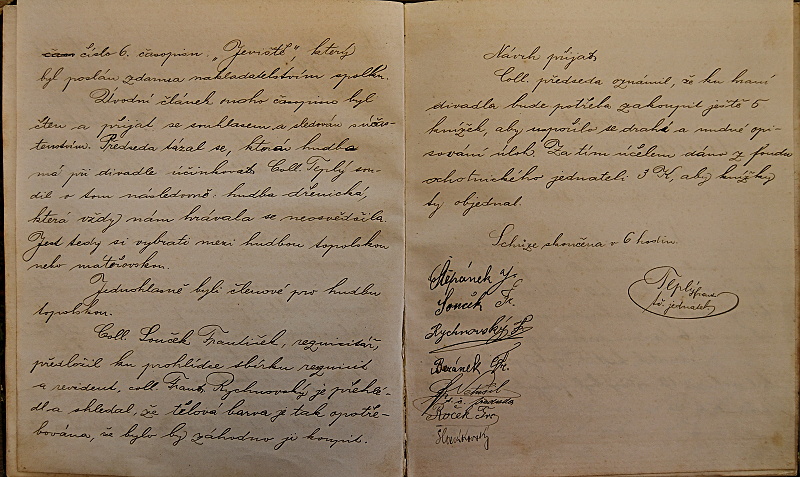 číslo 6. časopisu „Jeviště" který
byl poslán zdarma nakladatelstvím spolku.
Úvodní článek onoho časopisu byl
čten a přijat se souhlasem a sledován s účas-
tenstvím. Předseda tázal se, která hudba
má při divadle účinkovat. Coll. Teplý sou-
dil o tom následovně: hudba dřenická,
která vždy nám hrávala se neosvědšila.
Jest tedy si vybrati mezi hudbou topolskou
nebo
Jednohlasně byli členové pro hudbu
topolskou.
Coll. Souček František, requisitář,
předložil ku prohlídce sbírku requisit
a revident, coll. Frant. Rychnovský je přehlé-
dl a shledal, že tělová barva je tak opotře-
bována, že bylo by záhodno ji koupit.
Návrh přijat.
Coll. předseda oznámil, že ku hraní
divadla bude potřeba zakoupit ještě 5
knížek, aby uspořilo se drahé a nudné opi-
sování úloh. Za tím účelem dáno z fondu
ochotnického jednateli 3 K, aby knížky
ty objednal.
Schůze skončena v 6 hodin.
Štěpánek J.
Souček Fr.
Rychnovský F.
Beránek Fr.
předseda
Roček Fr.
Teplý
jednatel